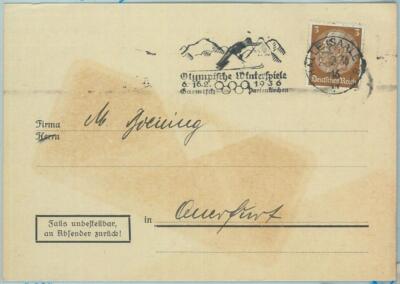 3 3
Deutsches Reich
HALLE (SAALE)
Olympische Winterspiele
6.-16.2. 1936
Garmisch Partenkirchen
Firma
Herrn
M
in Querfurt
Falls unbestellbar,
an Absender zurück!